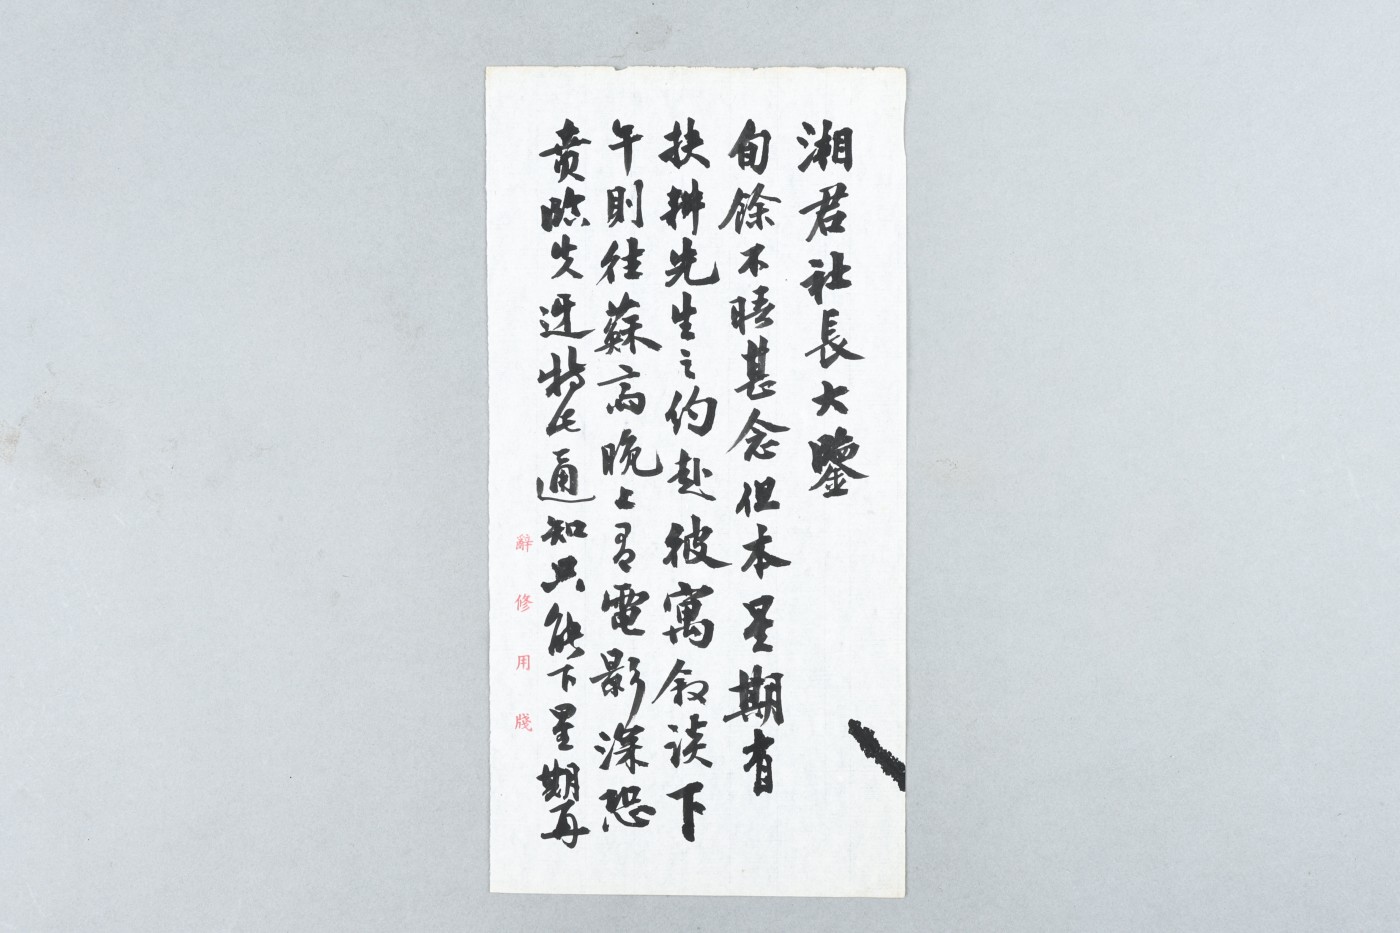 湘君社長大鑒
旬餘不晤甚念但本星期有
扶耕先生之約赴彼寓敘談下
午則往蘇高晚上有電影深恐
賁臨失迓特此通知只能下星期再
辭修用牋